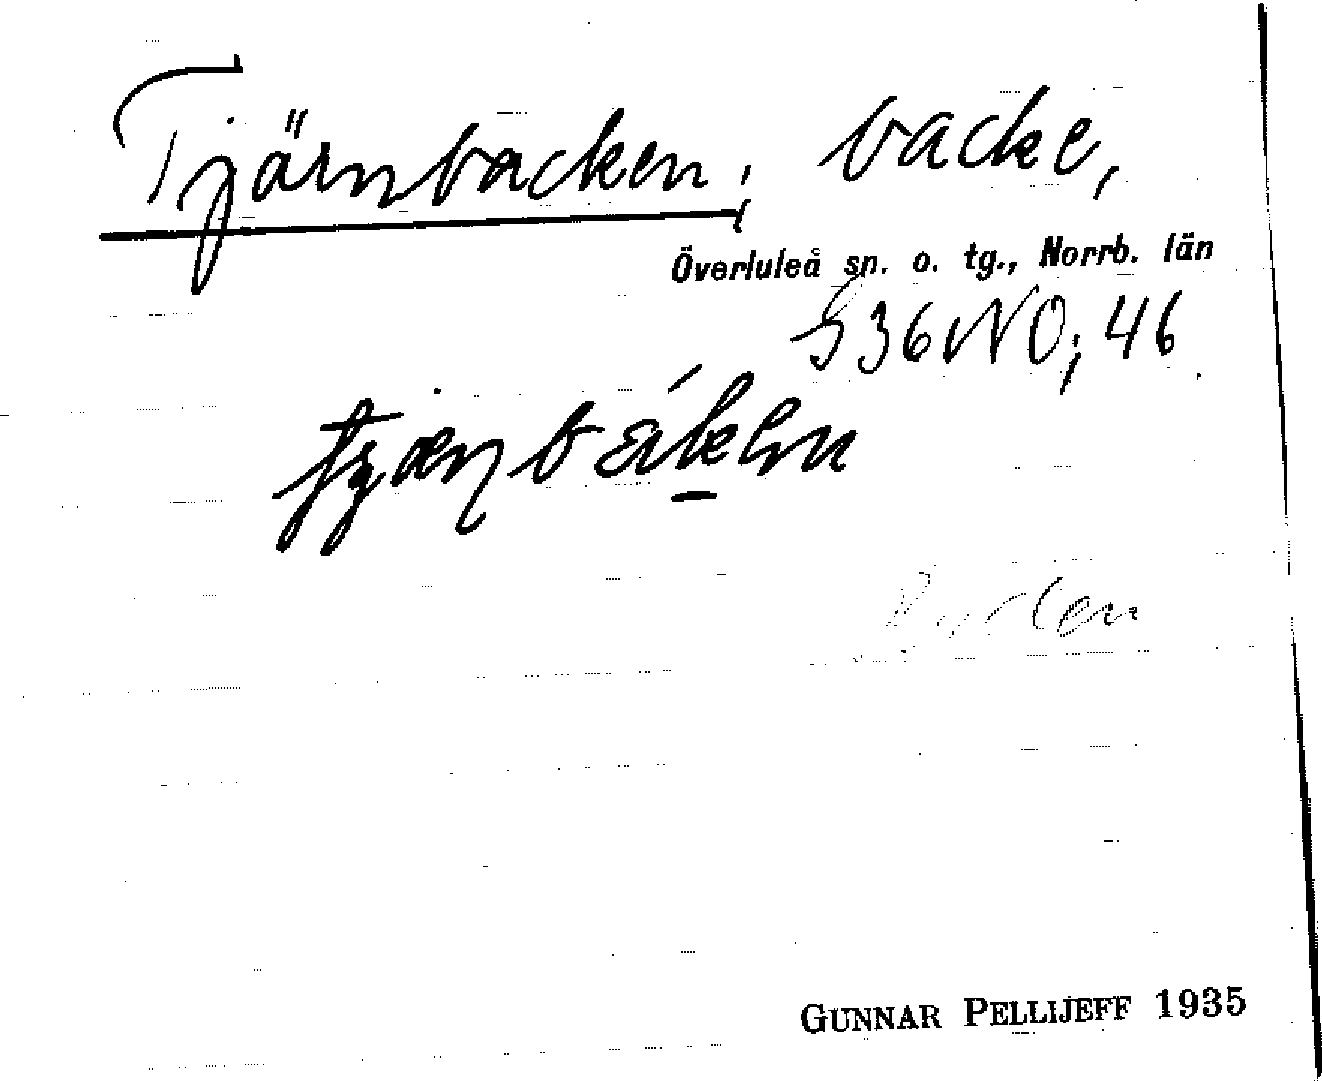 Tjärnbacken, backe,
Överluleå sn. o. tg., Norrb. län
S36NO; 46
GUNNAR PELLIJEFF 1935